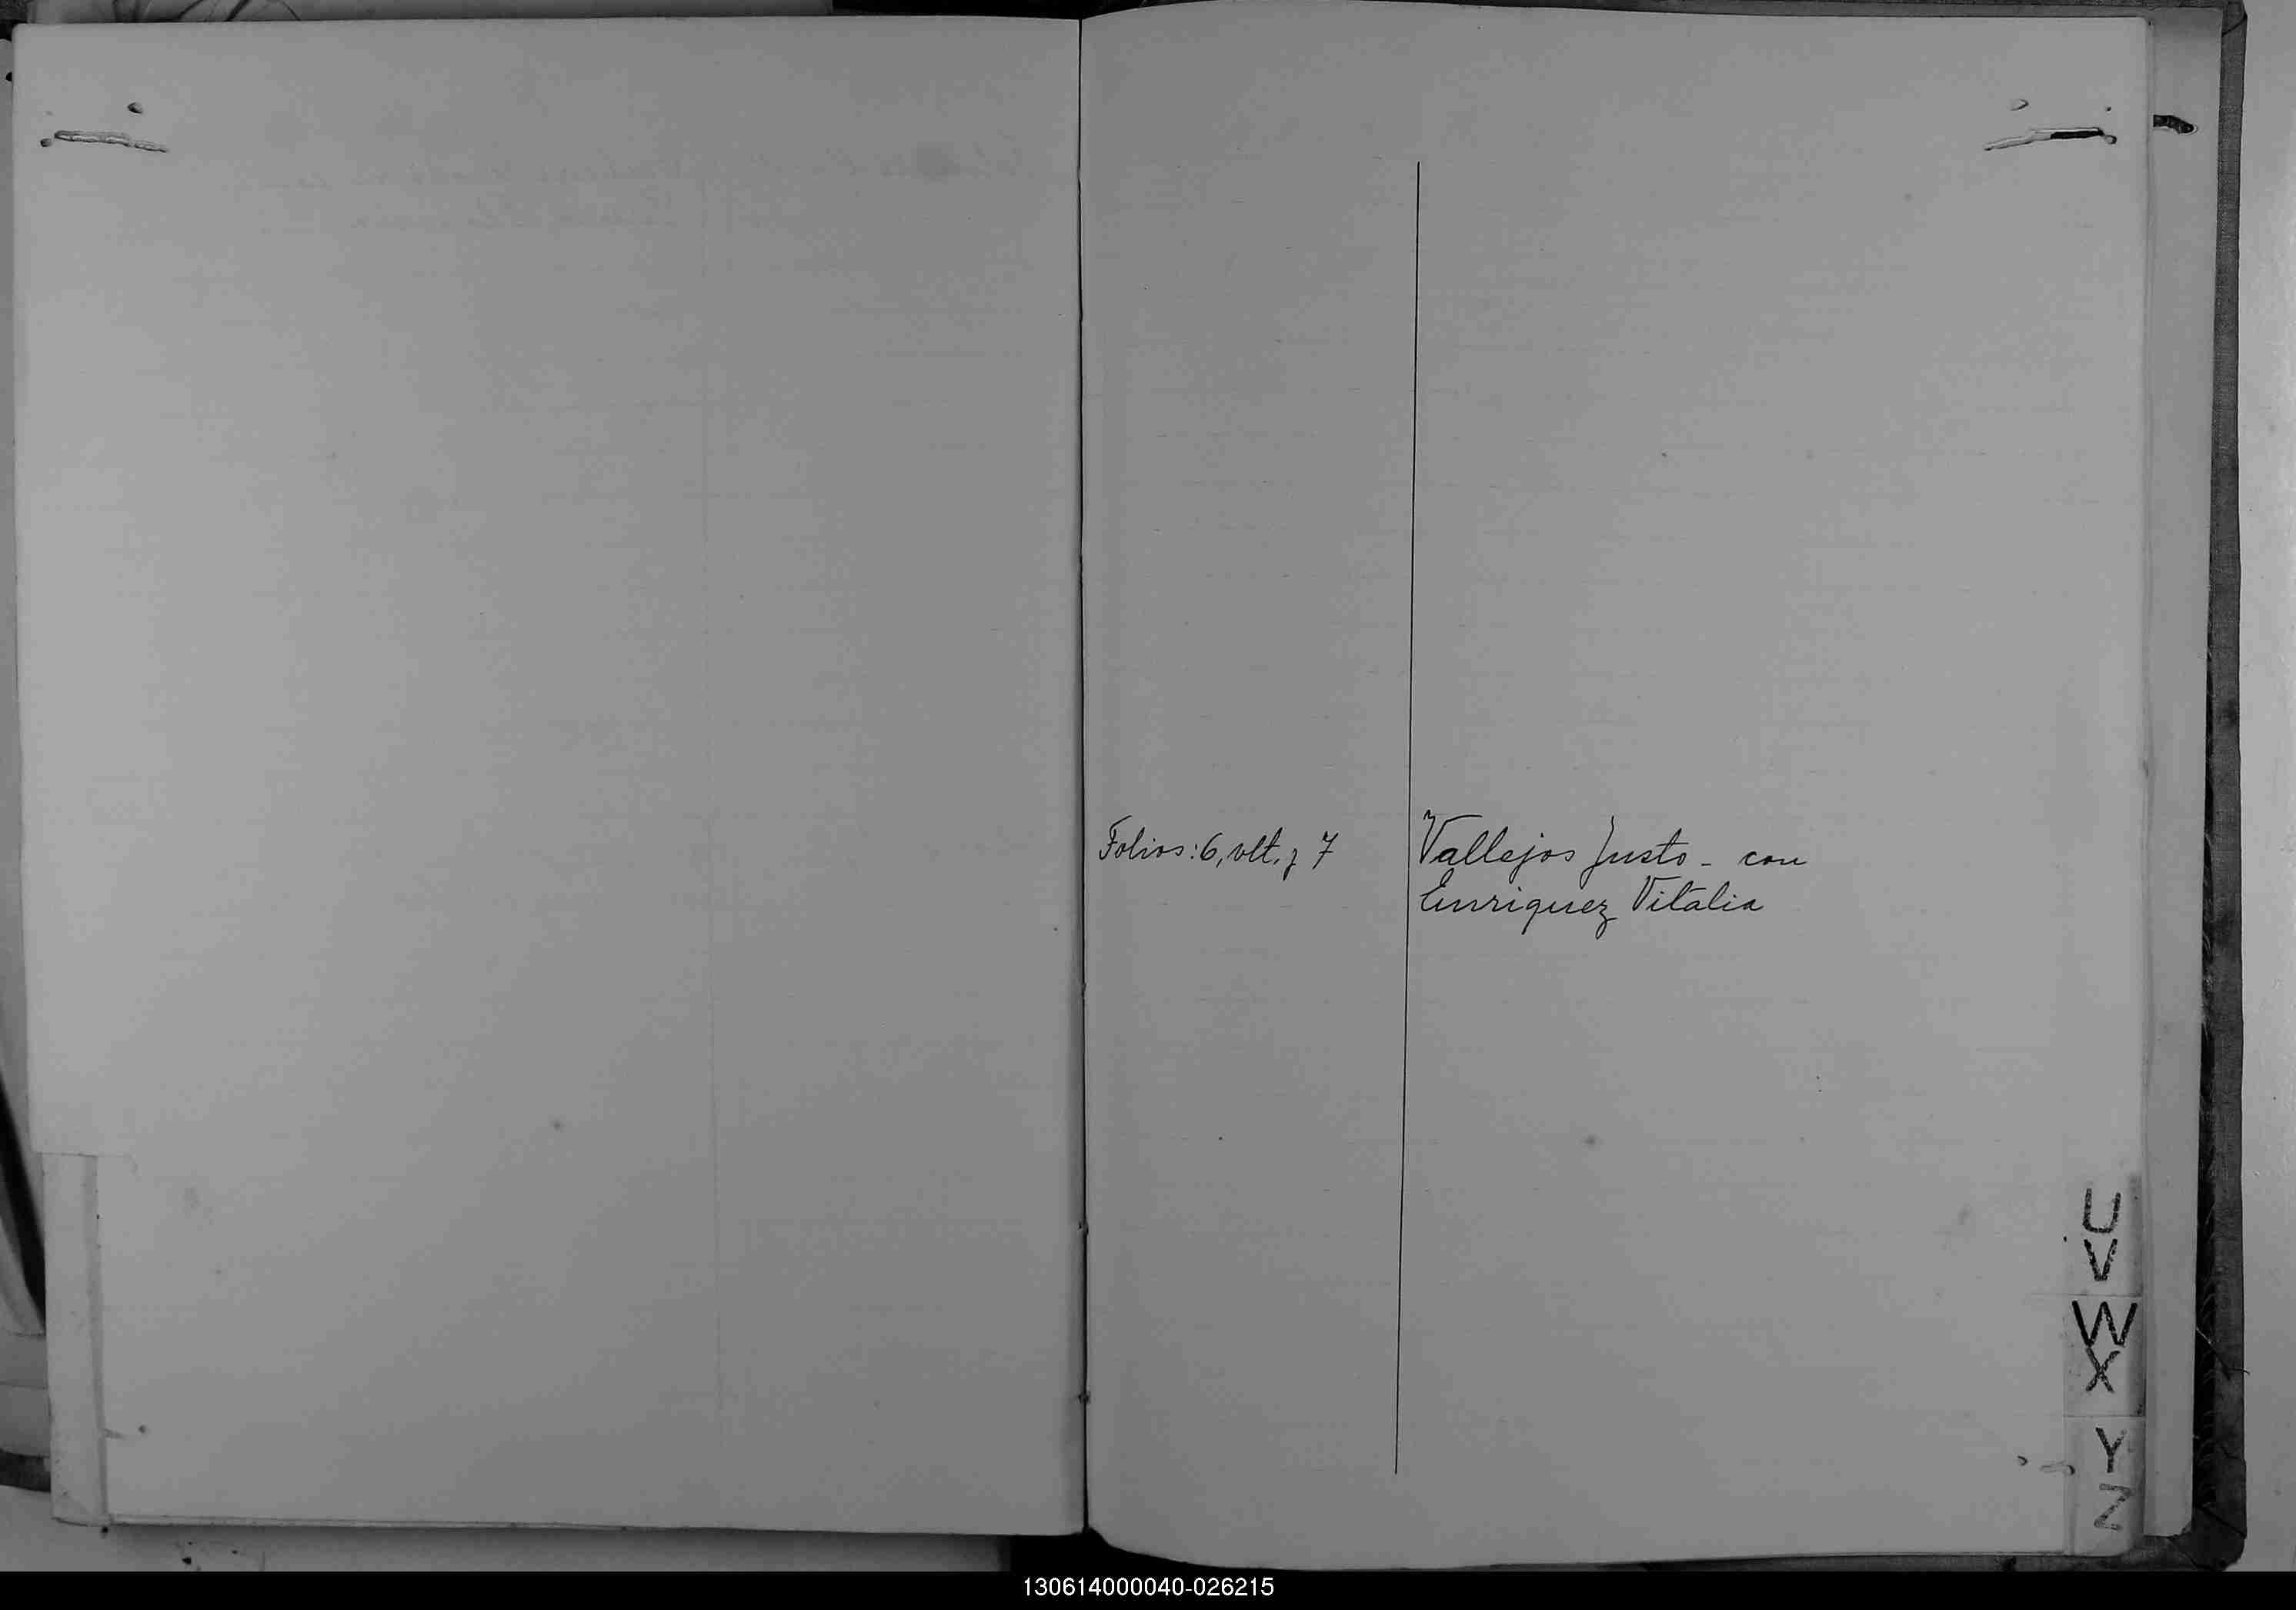 Folios: 6, vlt. y 7
Vallejos Justo - con
Enriquez Vitalia
U
V
W
X
Y
Z
130614000040-026215